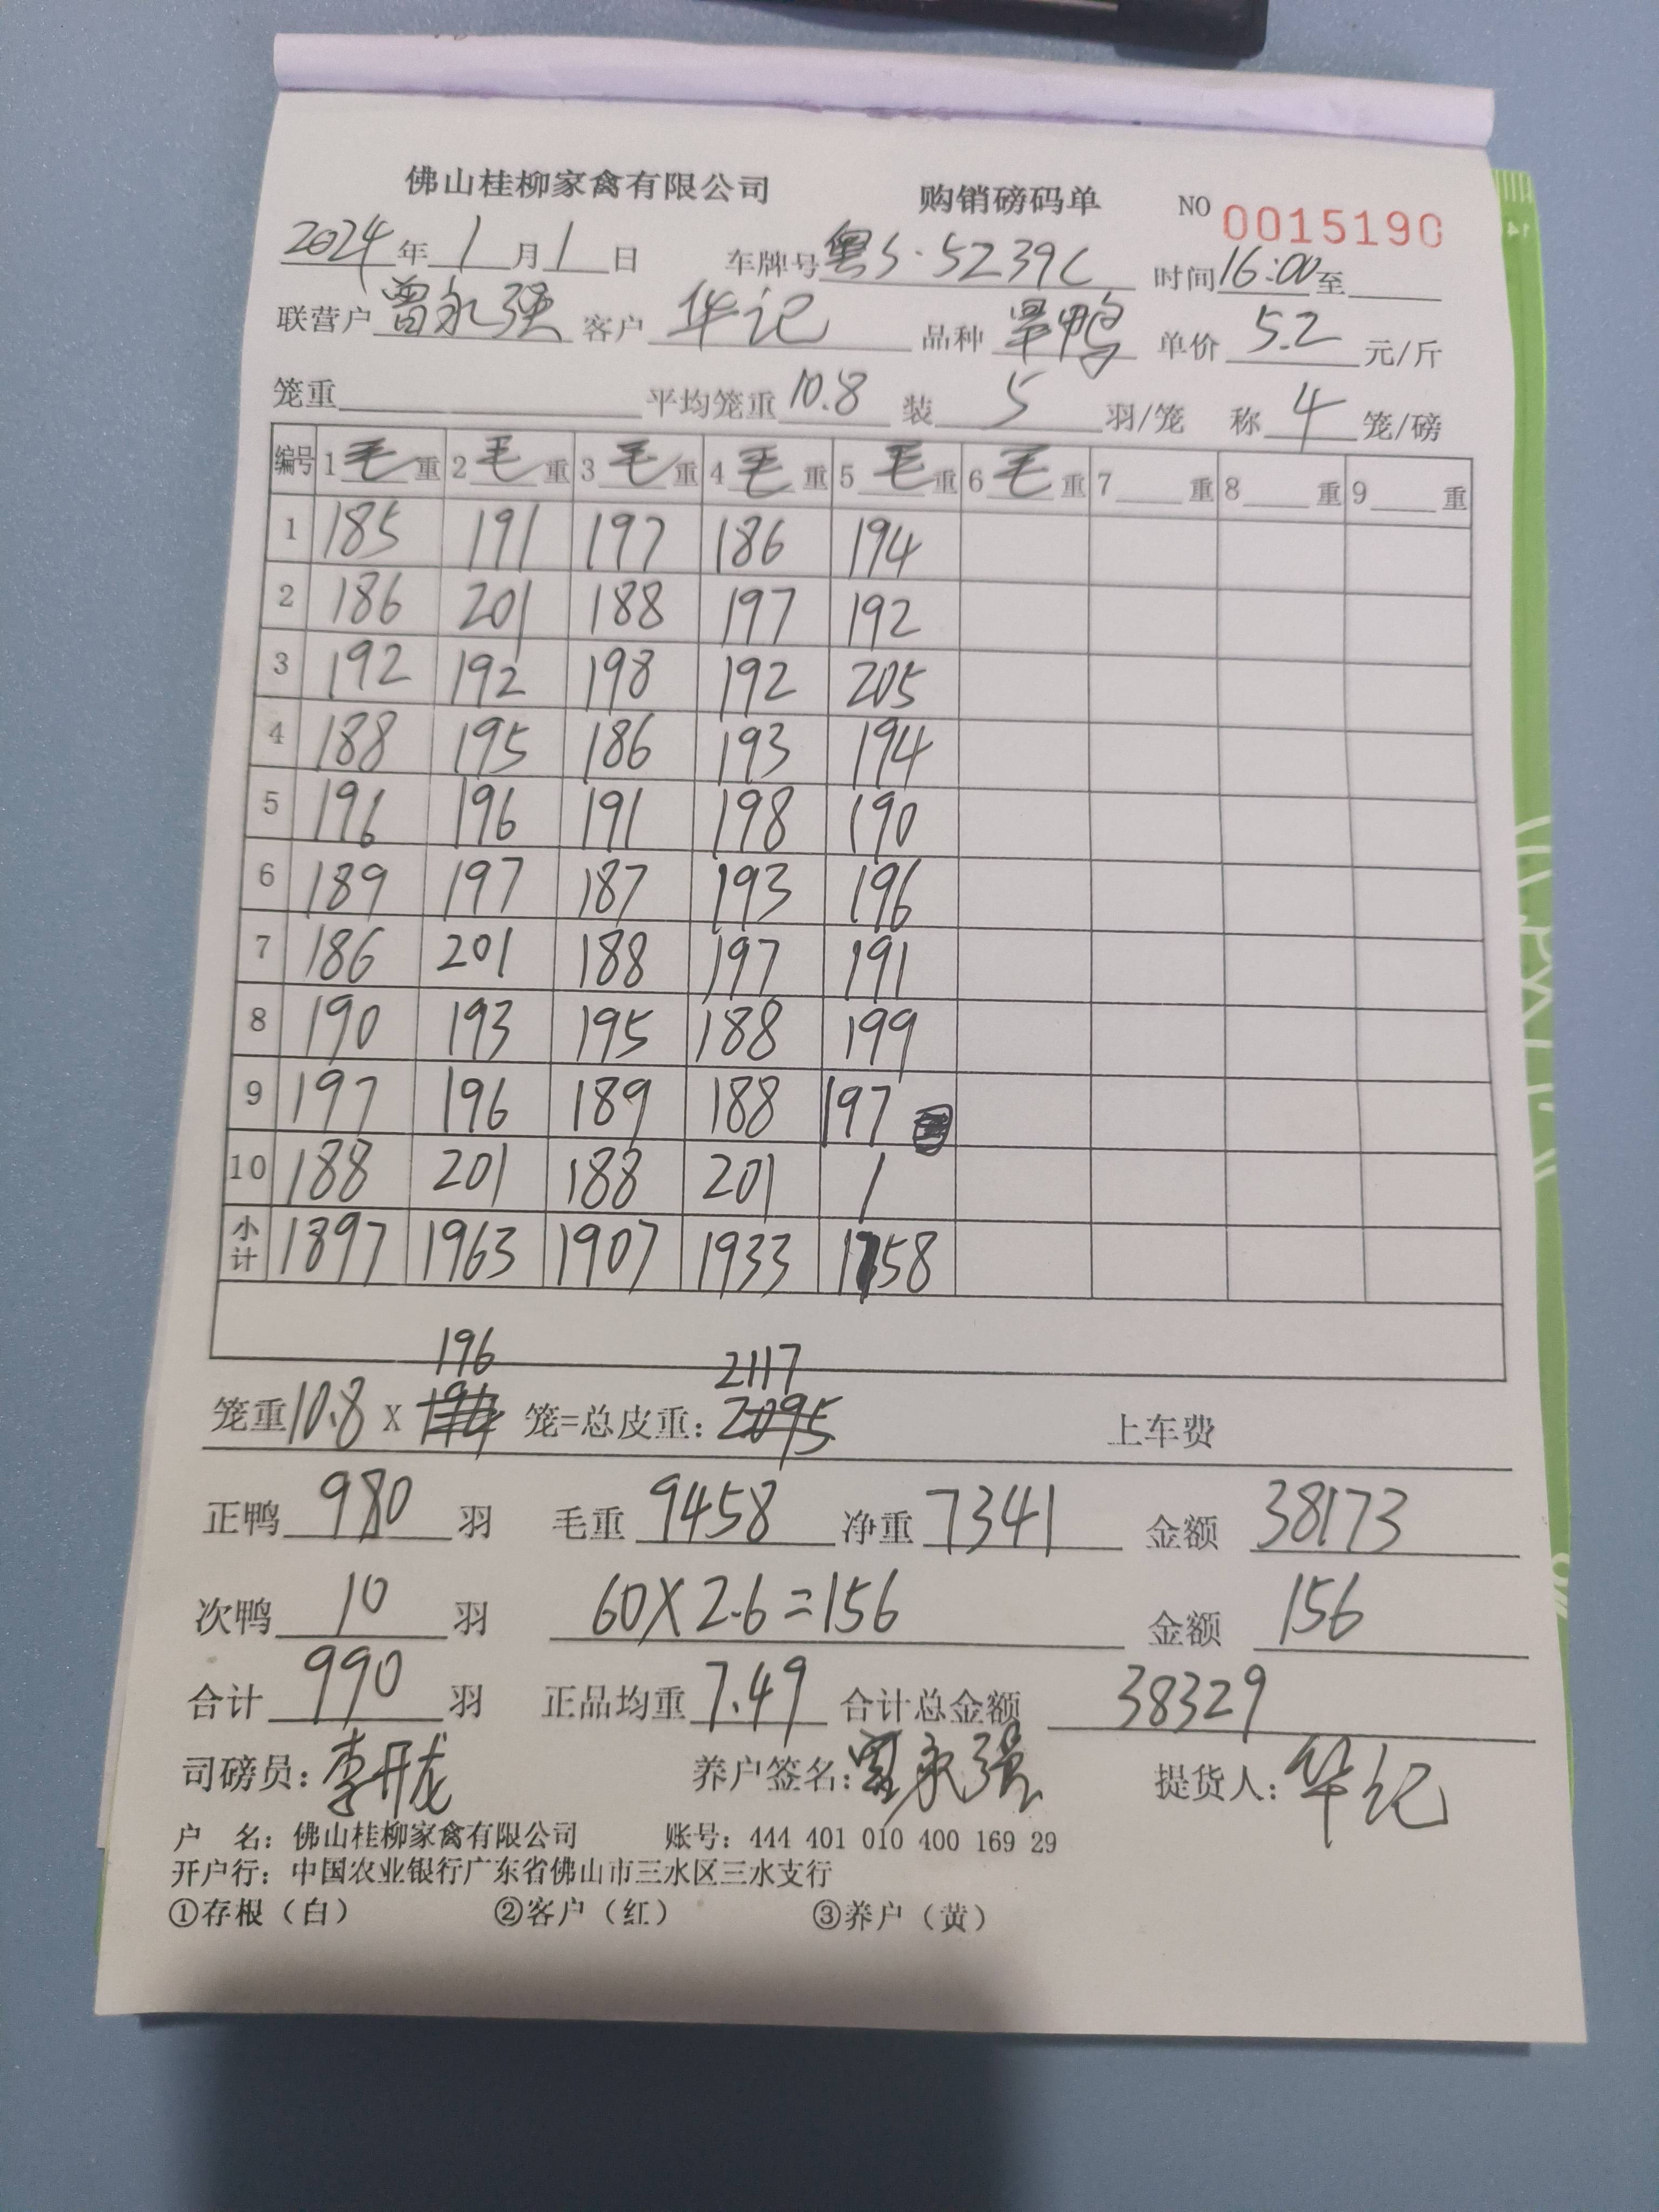 佛山桂柳家禽有限公司 购销磅码单 NO 0015190
2024年1月1日 车牌号粤S·5239C 时间16:00至
联营户曾永强 客户华记 品种旱鸭 单价5.2元/斤
笼重 平均笼重10.8 装5羽/笼 称4笼/磅
编号 1毛重 2毛重 3毛重 4毛重 5毛重 6毛重 7重 8重 9重
1 185 191 197 186 194
2 186 201 188 197 192
3 192 192 198 192 205
4 188 195 186 193 194
5 196 196 191 198 190
6 189 197 187 193 196
7 186 201 188 197 191
8 190 193 195 188 199
9 197 196 189 188 197
10 188 201 188 201 /
小计 1897 1963 1907 1933 1758
196 2117
笼重10.8 X 194 笼=总皮重：2095 上车费
正鸭980羽 毛重9458 净重7341 金额38173
次鸭10羽 60X2.6=156 金额156
合计990羽 正品均重7.49 合计总金额38329
司磅员：李开龙 养户签名：曾永强 提货人：华记
户 名：佛山桂柳家禽有限公司 账号：444 401 010 400 169 29
开户行：中国农业银行广东省佛山市三水区三水支行
①存根（白） ②客户（红） ③养户（黄）